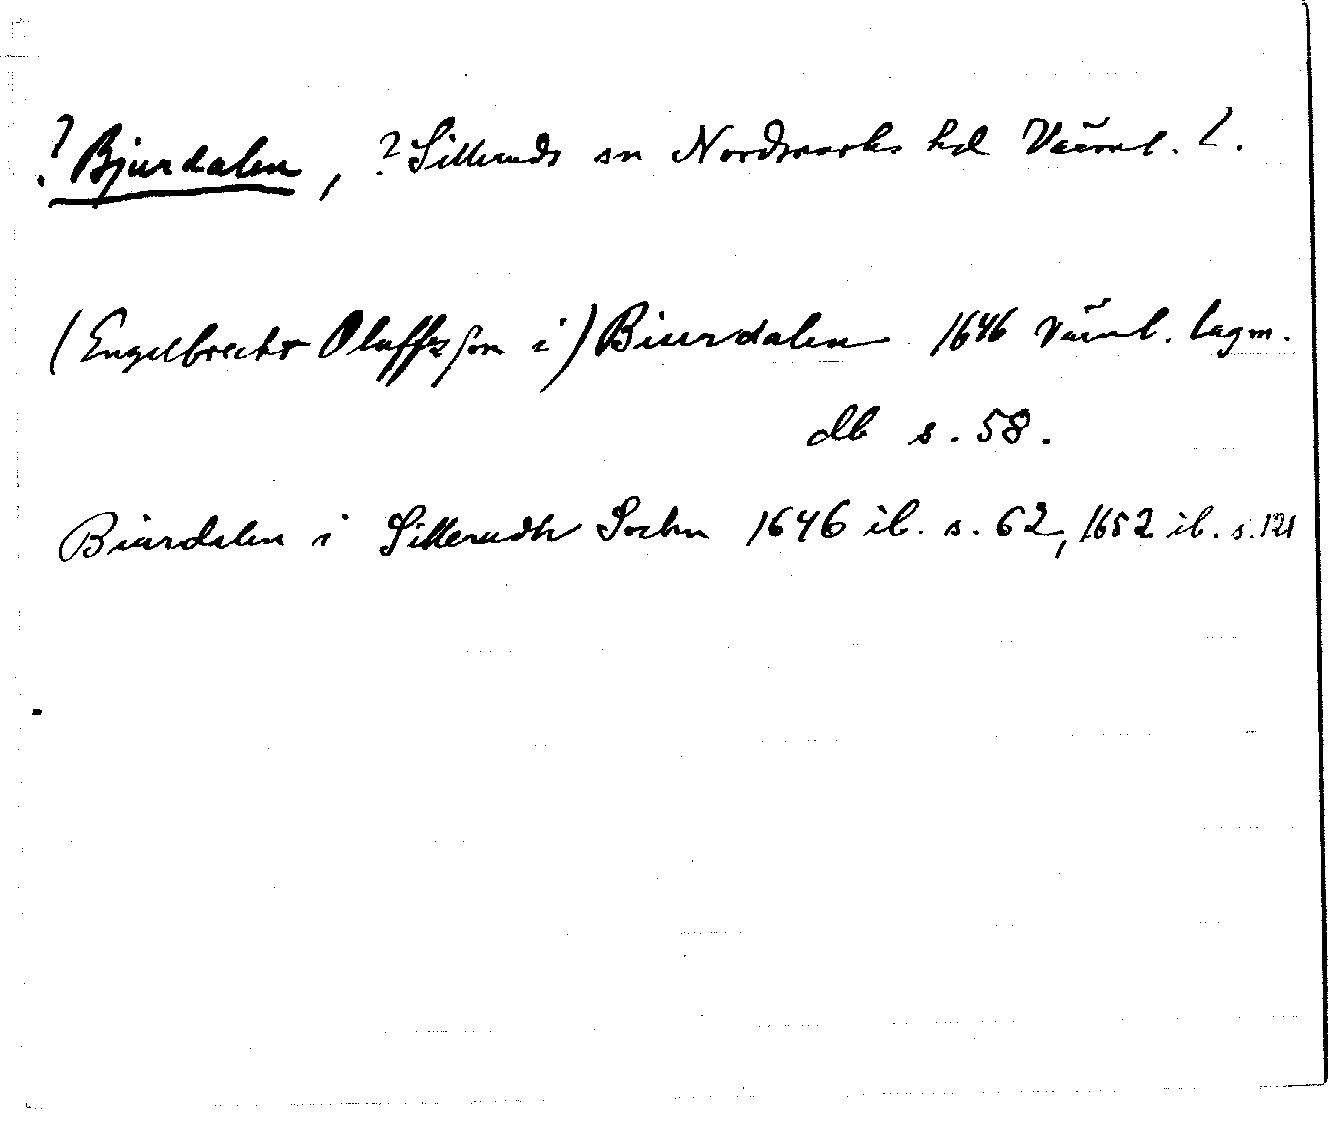 ? Bjurdalen, ? Silleruds sn Nordmarks hd Värml. l.
(Engelbrecht Oluffzson i) Biurdalen 1646 Värml. lagm.
db s. 58.
Biurdalen i Sillerudh Sochn 1646 ib. s. 62, 1652 ib. s. 121